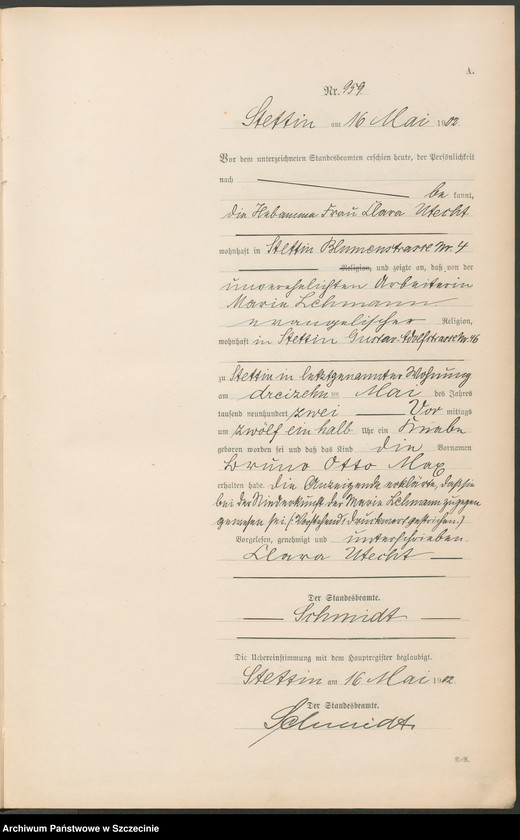 A.
Nr. 959.
Stettin am 16 Mai 1902
Vor dem unterzeichneten Standesbeamten erschien heute, der Persönlichkeit
nach
be kannt,
die Hebamme Frau Clara Utecht
wohnhaft in Stettin Blumenstrasse Nr. 4
Religion, und zeigte an, daß von der
unverehelichten Arbeiterin
Marie Lehmann
evangelischer Religion,
wohnhaft in Stettin Gustav-Adolfstrasse Nr. 46
zu Stettin in letztgenannter Wohnung
am dreizehn ten Mai des Jahres
tausend neunhundert zwei Vor mittags
um zwölf ein halb Uhr ein Knabe
geboren worden sei und daß das Kind die Vornamen
Bruno Otto Max
erhalten habe. Die Anzeigende erklärte, daß sie
bei der Niederkunft der Marie Lehmann zugegen
gewesen sei (: Vorstehend 1 Druckwort gestrichen.)
Vorgelesen, genehmigt und unterschrieben
Clara Utecht
Der Standesbeamte.
Schmidt
Die Uebereinstimmung mit dem Hauptregister beglaubigt.
Stettin am 16 Mai 1902
Der Standesbeamte.
Schmidt
Archiwum Państwowe w Szczecinie